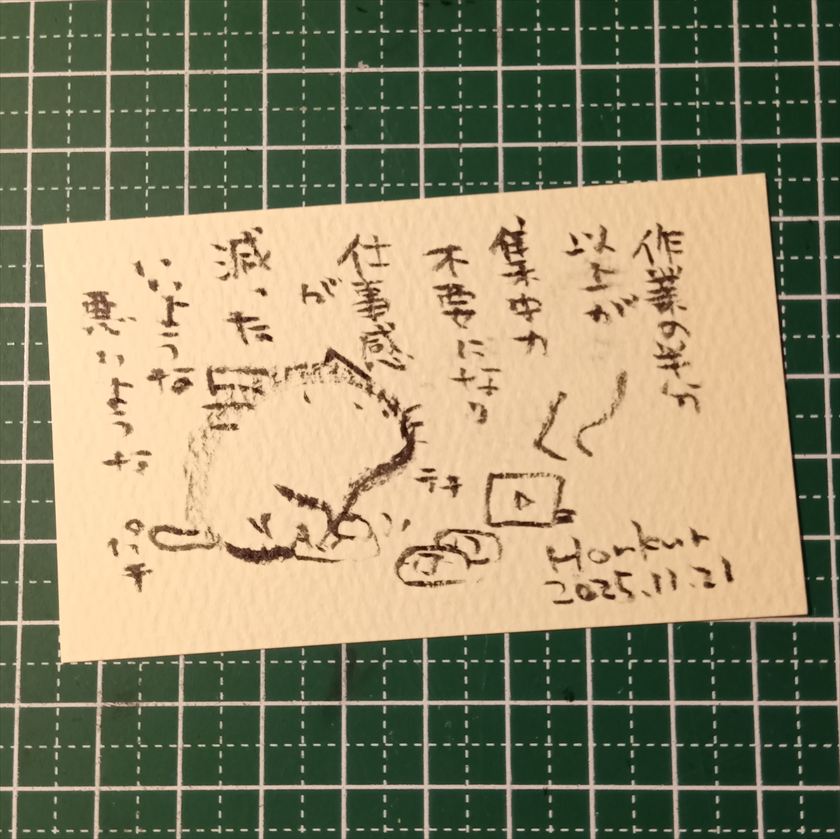 作業の半分
以上が
集中力
不要になり
仕事感
が
減った
いいような
悪いような
ラキ
Horkur
2025.11.21